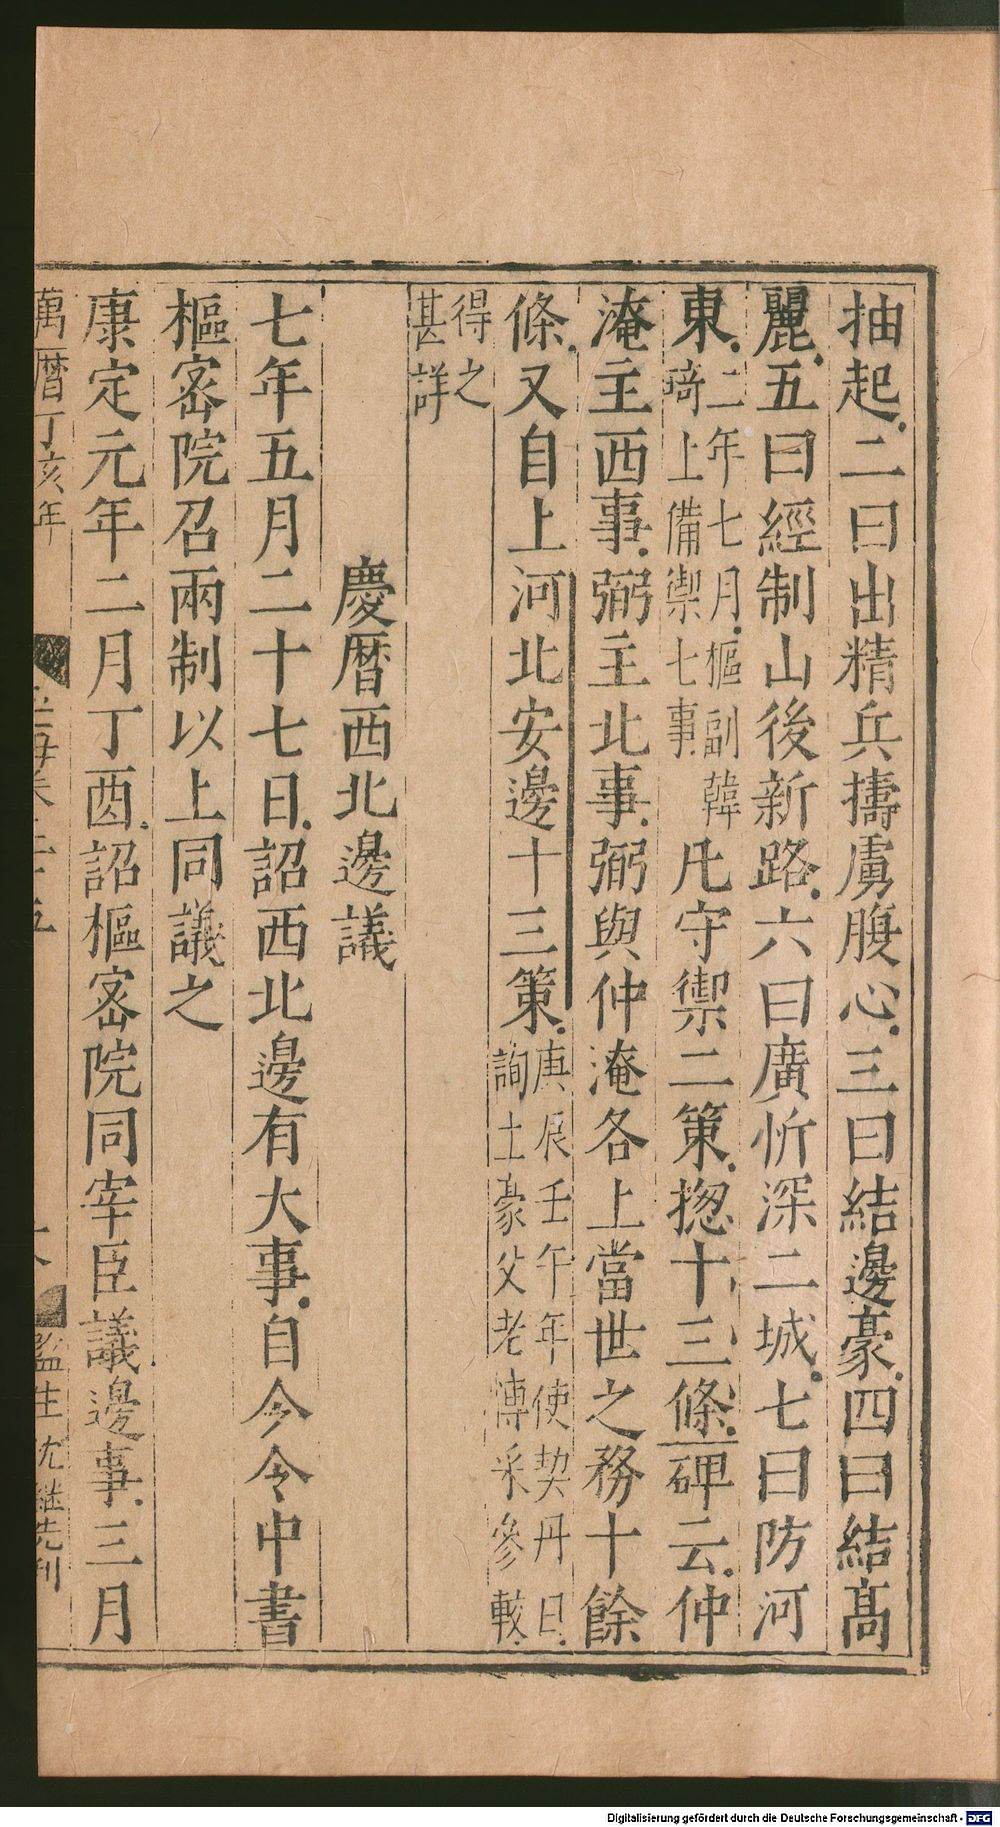 抽起二曰出精兵擣虜腹心三曰結邊豪四曰結髙
麗五曰經制山後新路六曰廣忻深二城七曰防河
東二年七月樞副韓琦上備禦七事凡守禦二策揔十三條碑云仲
淹主西事弼主北事弼與仲淹各上當世之務十餘
條又自上河北安邊十三策庚辰壬午年使契丹日詢土豪父老博采參較
得之甚詳
慶暦西北邊議
七年五月二十七日詔西北邊有大事自今令中書
樞宻院召兩制以上同議之
康定元年二月丁酉詔樞宻院同宰臣議邊事三月
萬暦丁亥年
監生沈継先刊
Digitalisierung gefördert durch die Deutsche Forschungsgemeinschaft - DFG